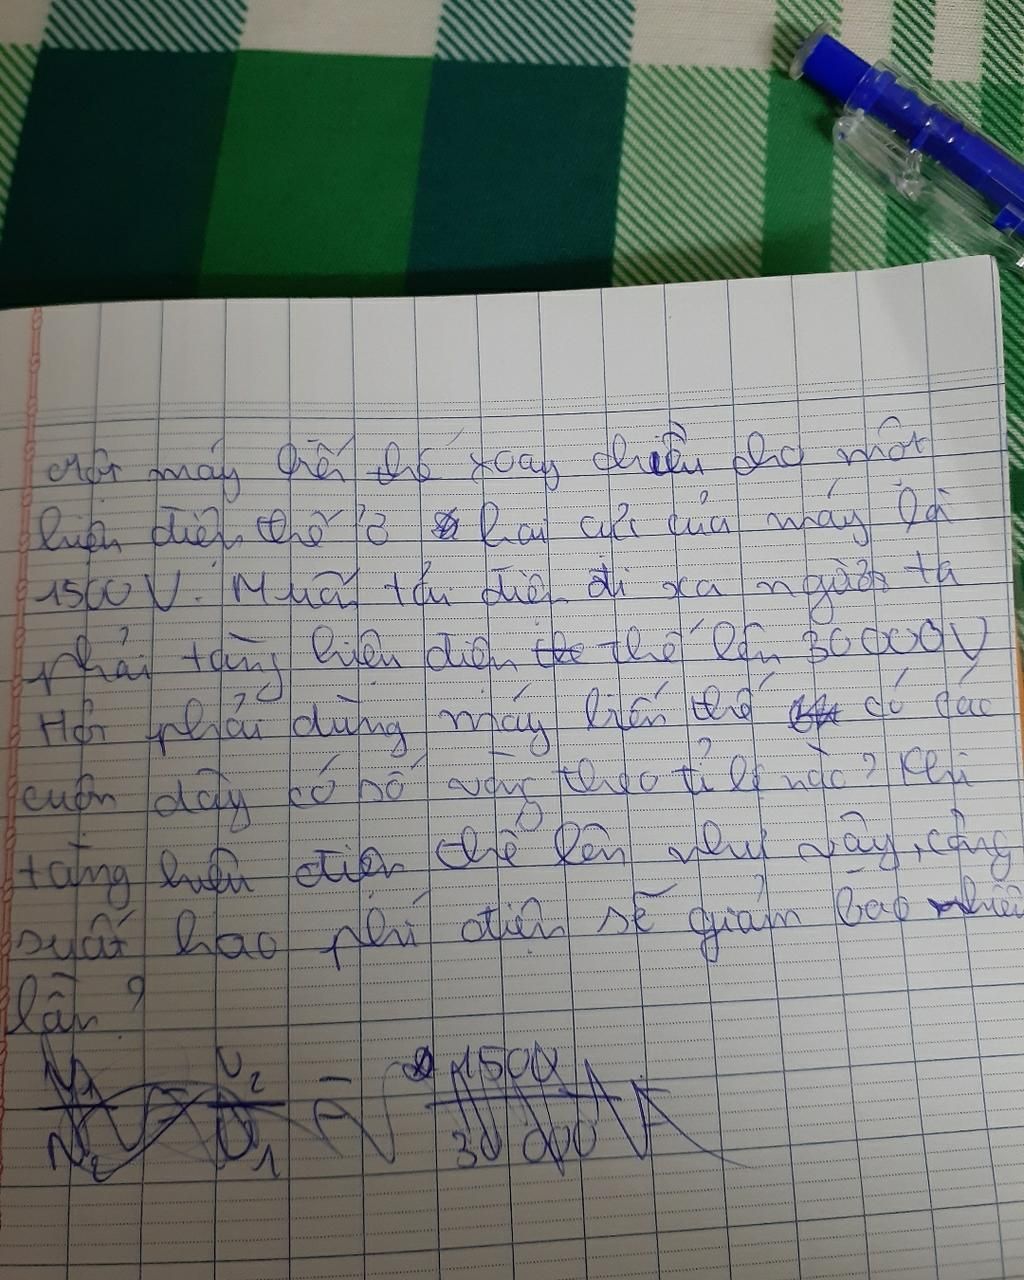 Một máy biến thế xoay chiều cho một
hiệu điện thế ở hai cực của máy là
1500V. Muốn tải điện đi xa người ta
phải tăng hiệu điện thế lên 30000V
Hỏi phải dùng máy biến thế có các
cuộn dây có số vòng theo tỉ lệ nào? Khi
tăng hiệu điện thế lên như vậy, công
suất hao phí điện sẽ giảm bao nhiêu
lần?